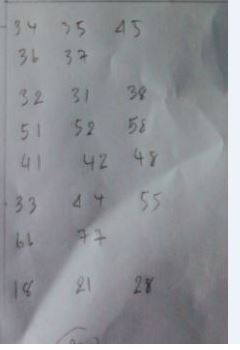 34 35 45
36 37
32 31 38
51 52 58
41 42 48
33 44 55
66 77
18 21 28